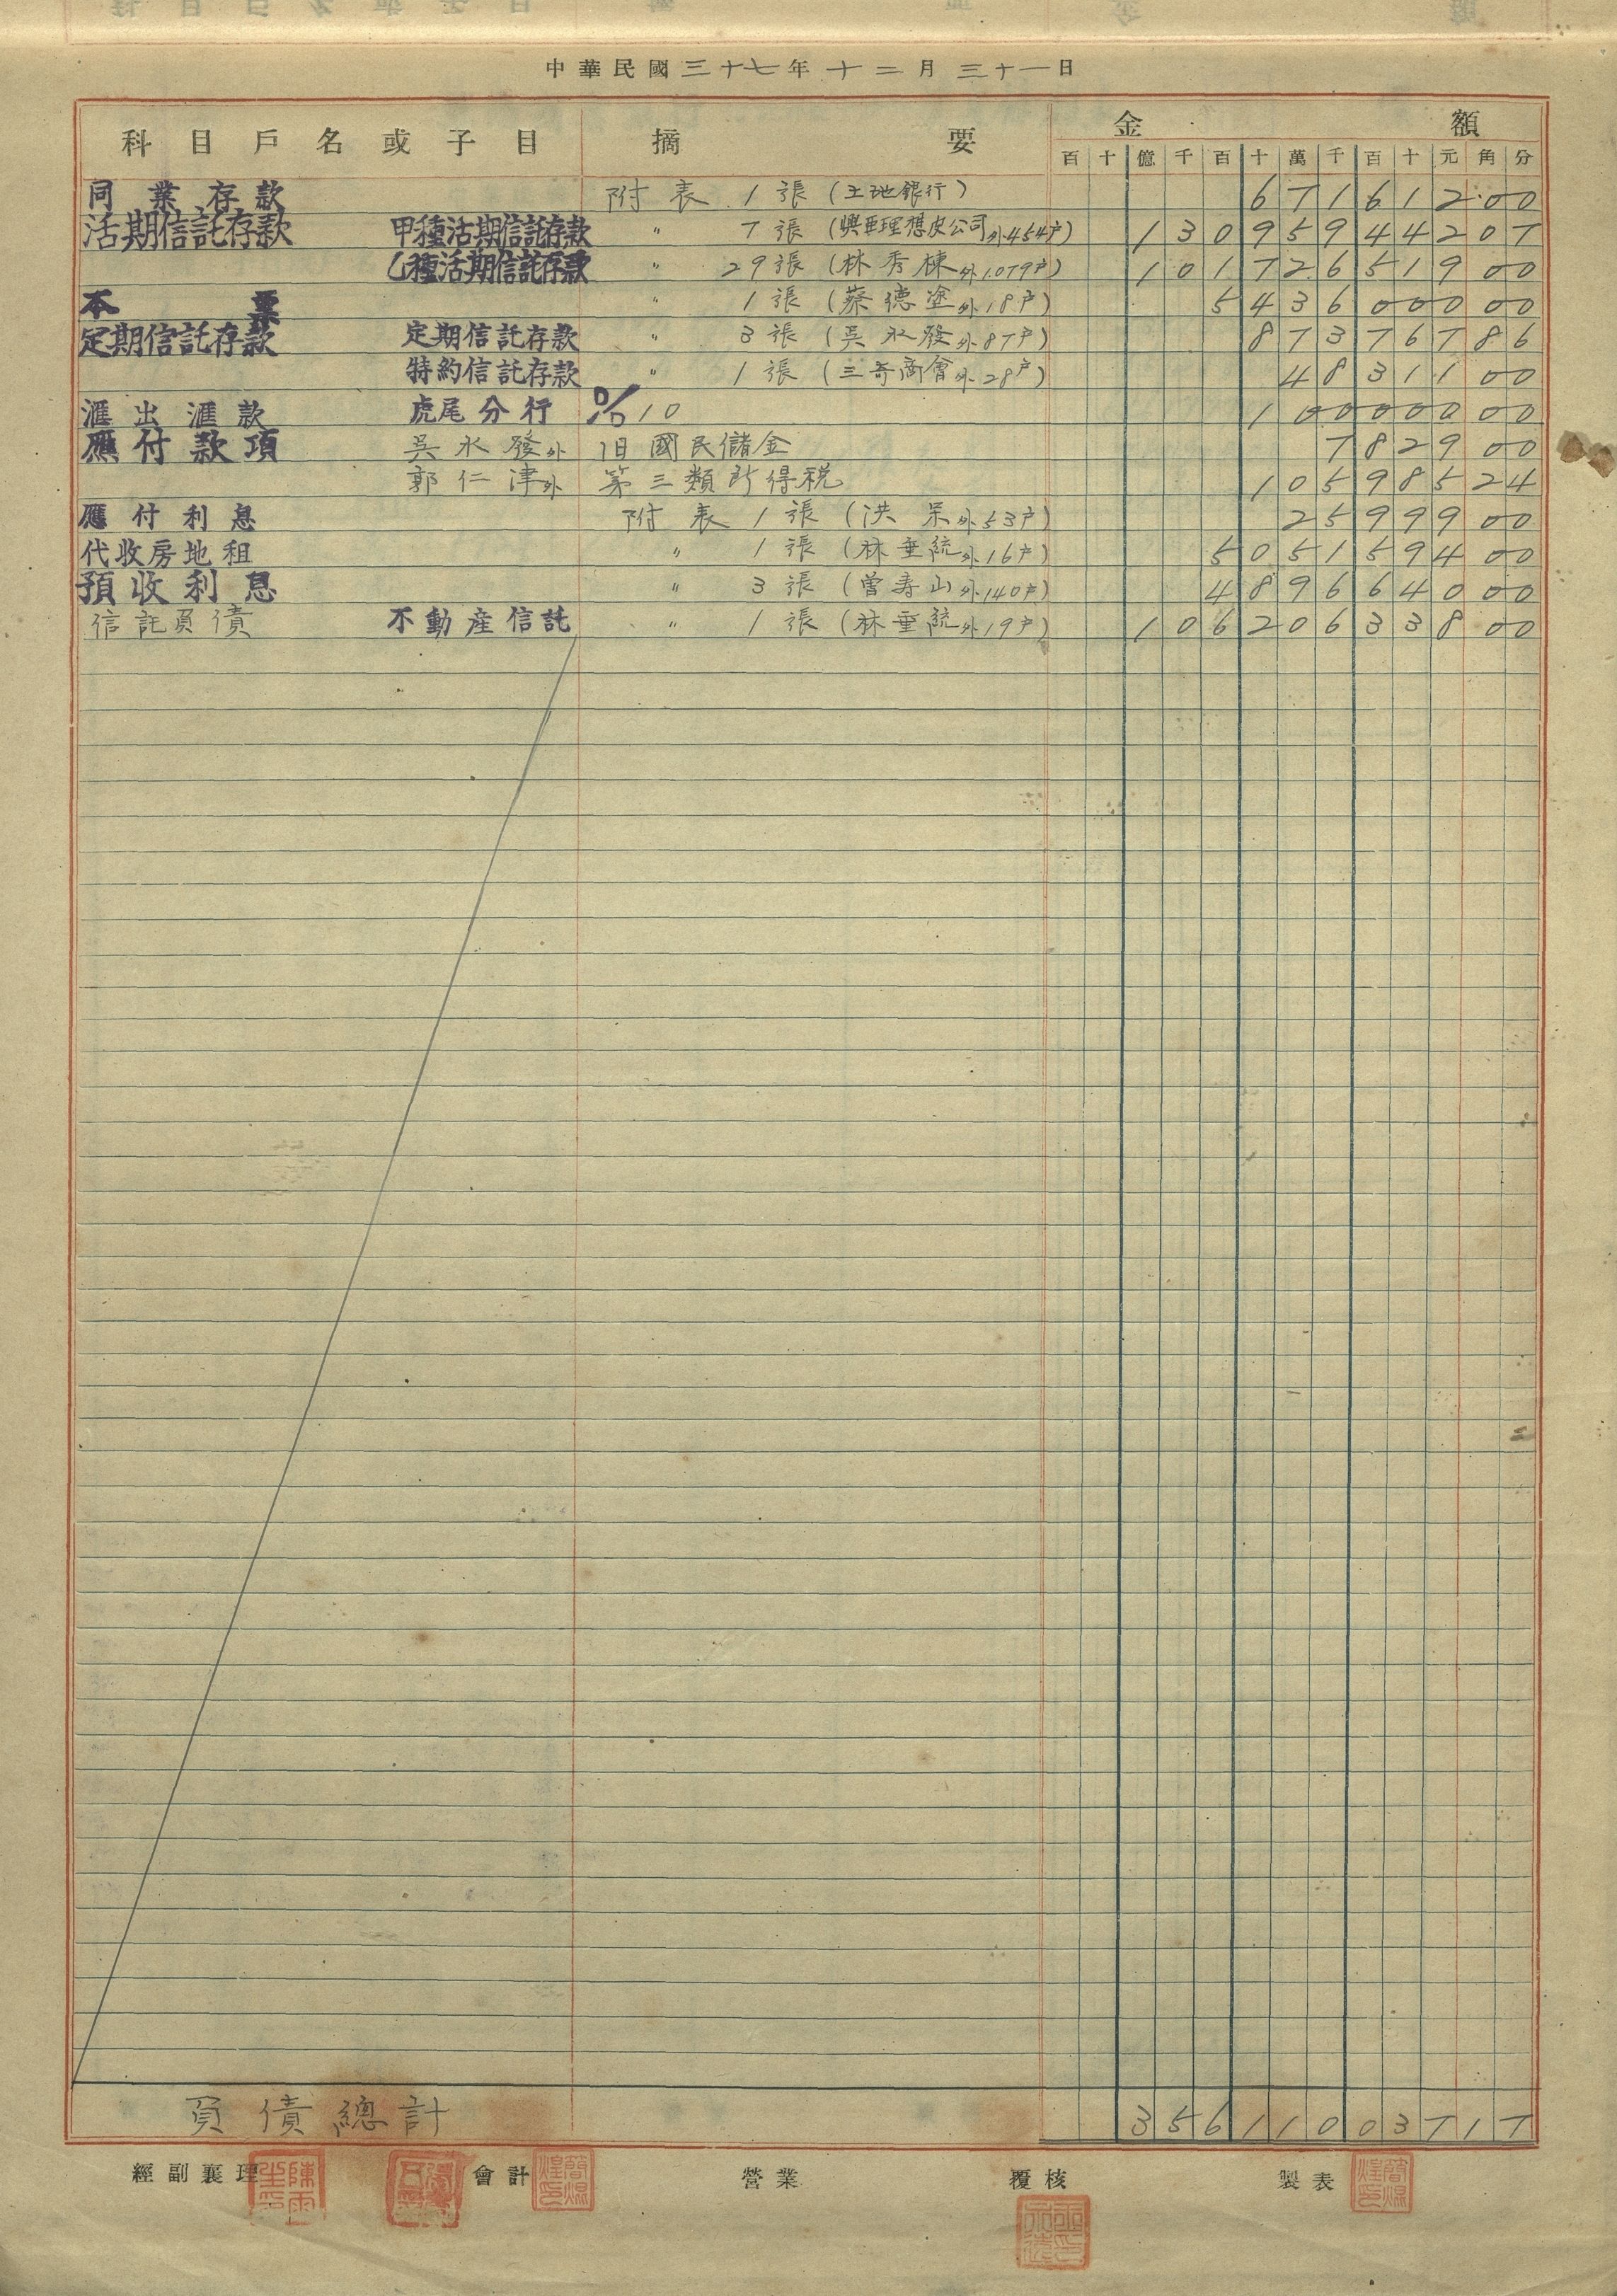 中華民國三十七年十二月三十一日
科目戶名或子目 摘要 金額
百 十 億 千 百 十 萬 千 百 十 元 角 分
同業存款 附表 1張 (土地銀行) 6 7 1 6 1 2 0 0
活期信託存款 甲種活期信託存款 〃 7張 (興亜理想皮公司外454戶) 1 3 0 9 5 9 4 4 2 0 7
乙種活期信託存款 〃 29張 (林秀棟外1.079戶) 1 0 1 7 2 6 5 1 9 0 0
本票 〃 1張 (蔡德塗外18戶) 5 4 3 6 0 0 0 0 0
定期信託存款 定期信託存款 〃 3張 (吳水發外87戶) 8 7 3 7 6 7 8 6
特約信託存款 〃 1張 (三奇商會外28戶) 4 8 3 1 1 0 0
滙出滙款 虎尾分行 D/D 10 1 0 0 0 0 0 0 0
應付款項 吳水發外 旧國民儲金 7 8 2 9 0 0
郭仁津外 第三類所得稅 1 0 5 9 8 5 2 4
應付利息 附表 1張 (洪呆外53戶) 2 5 9 9 9 0 0
代收房地租 〃 1張 (林垂統外16戶) 5 0 5 1 5 9 4 0 0
預收利息 〃 3張 (曾壽山外140戶) 4 8 9 6 6 4 0 0 0
信託負債 不動産信託 〃 1張 (林垂統外19戶) 1 0 6 2 0 6 3 3 8 0 0
負債總計 3 5 6 1 1 0 0 3 7 1 7
經副襄理 會計 營業 覆核 製表